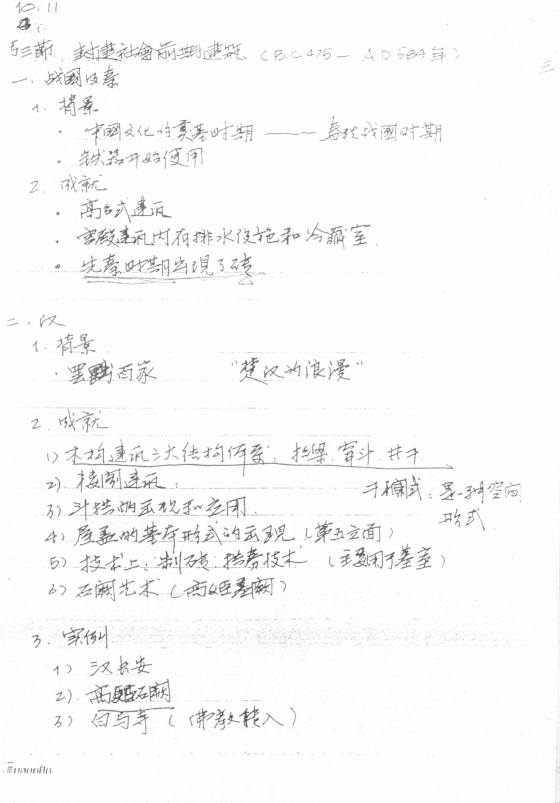 10.11
第三節、封建社會前期建筑（B.C 475 — A D 589年） 三
一、战國及秦
1. 背景
· 中國文化的奠基时期 —— 春秋战國时期
· 铁器开始使用
2. 成就
· 高台式建筑
· 宫殿建筑内有排水设施和冷藏室.
· 先秦时期出現了砖
二、汉
1. 背景
· 罢黜百家 "楚汉的浪漫"
2. 成就
1) 木构建筑三大结构体系：抬梁.穿斗.井干
2). 楼阁建筑： 干栏式：是一种空间形式
3) 斗拱的出现和应用.
4) 屋盖的基本形式的出現（第五立面）
5) 技术上：制砖.拱券技术（主要用于墓室）
6) 石阙艺术（高颐墓阙）
3. 实例
1) 汉长安
2). 高颐石阙
3) 白马寺（佛教转入）